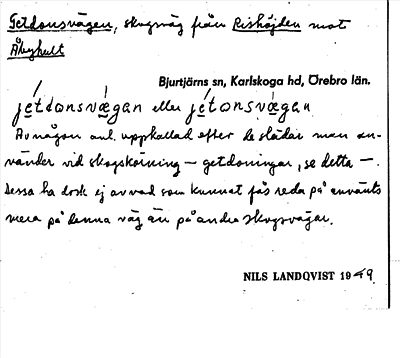 Getdonsvägen, skogsväg från Rishöjden mot
Åbyhult
Bjurtjärns sn, Karlskoga hd, Örebro län.
jétdɷnsvǽgan eller jétɷnsvǽgan
Av någon anl. uppkallad efter de slädar man an-
vänder vid skogskörning – getdoningar, se detta –.
Dessa ha dock ej av vad som kunnat fås reda på använts
mera på denna väg än på andra skogsvägar.
NILS LANDQVIST 1949.